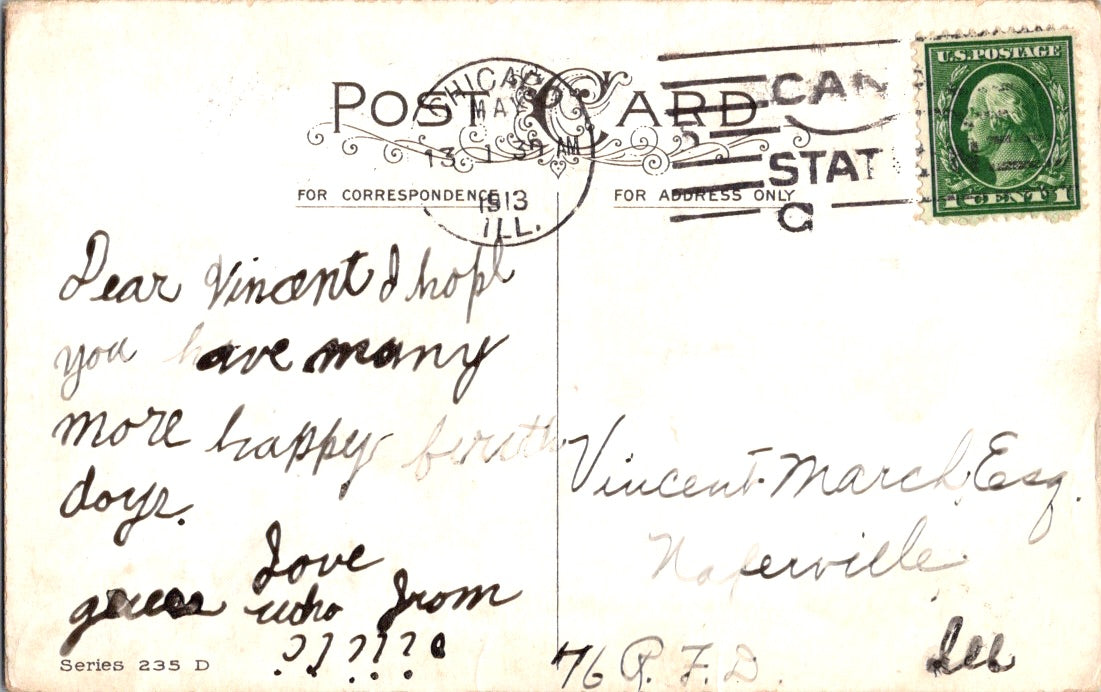 POST CARD
CHICAGO
MAY
13 1 30 AM
1913
ILL.
CAN
STAT
C
U.S. POSTAGE
1 CENT 1
FOR CORRESPONDENCE
FOR ADDRESS ONLY
Dear Vincent I hope
you have many
more happy birth
days.
Love
guess who from
??????
Series 235 D
Vincent March, Esq.
Naperville
Ill
76 R. F. D.